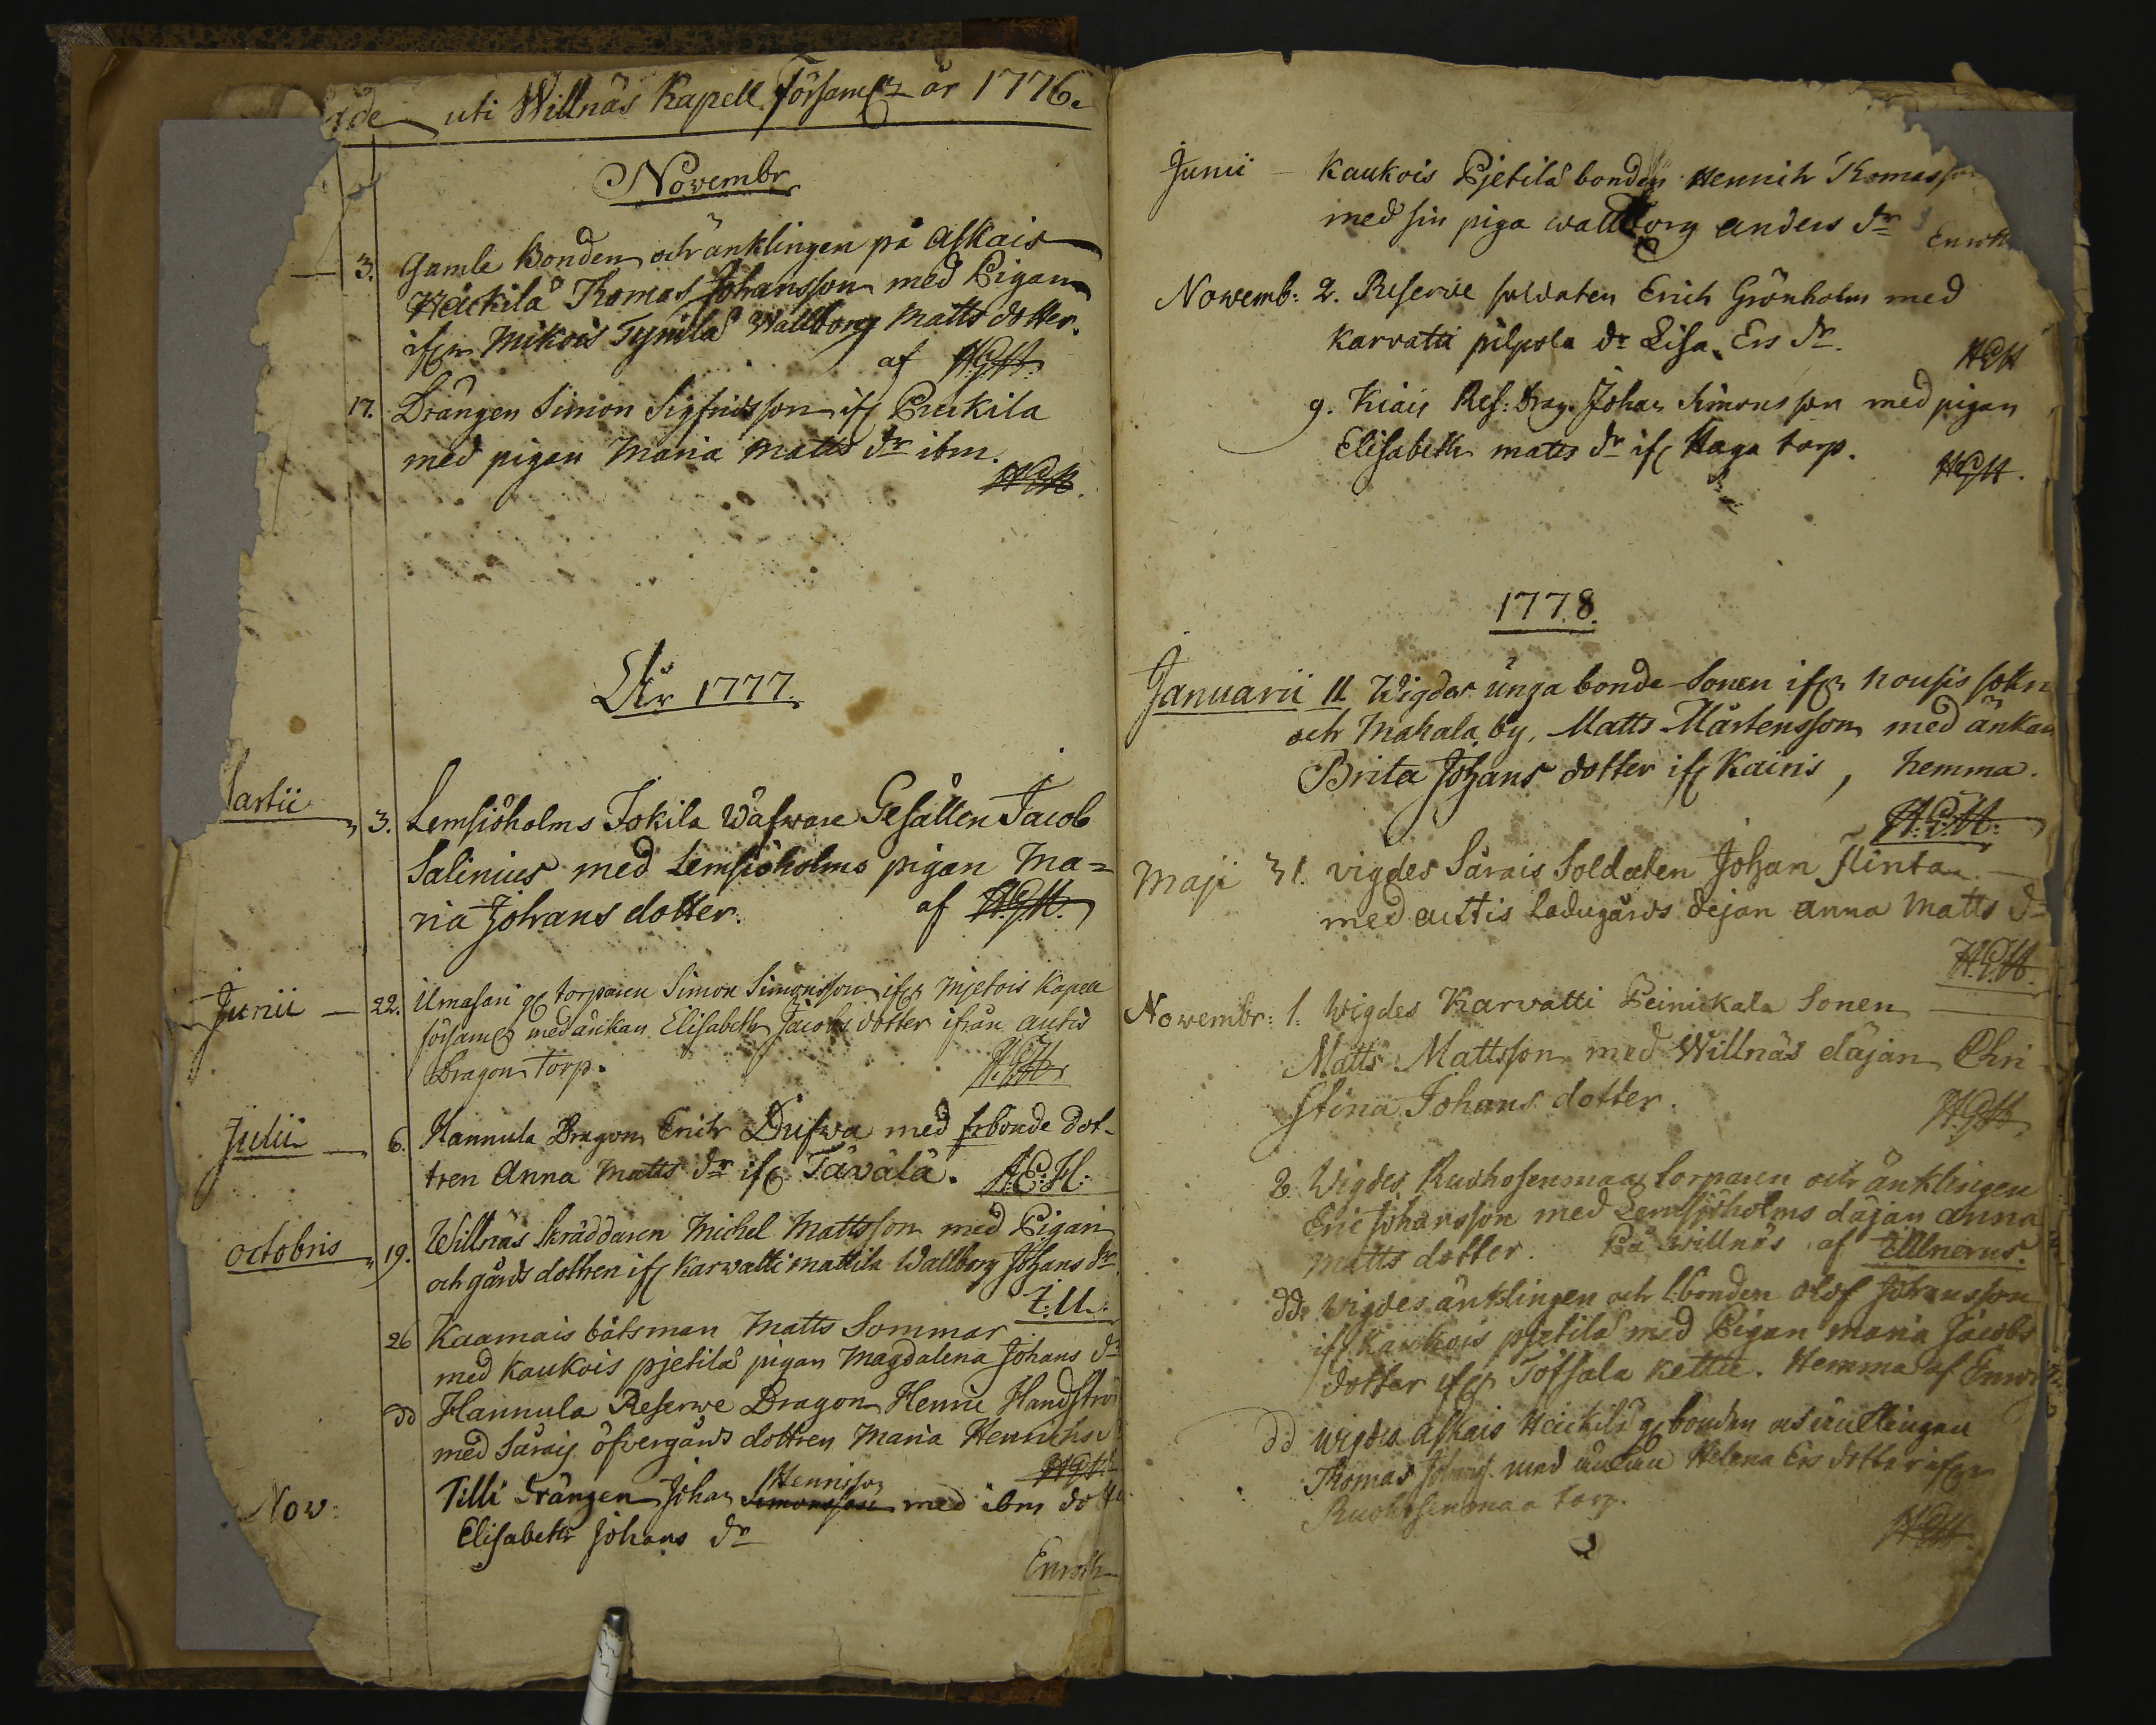 uti Willnäs Kapell Församl. år 1776.
Novembr
3. Gamle Bonden och änklingen på Askais
Heickilä Thomas Johansson med Pigan
ifr. Mikois Tynilä Wallborg Matts dotter.
af H.G.H.
17. Drängen Simon Sigfridsson if. Prukila
med pigan Maria Matts dr ibm.
H.G.H.
År 1777.
artii 3. Lemsiöholms Jokila Wäfvare Gesällen Jacob
Salenius med Lemsiöholms pigan Ma=
ria Johans dotter. af H.G.H.
Junii 22. Ilmasari torparen Simon Simonsson ifr. Mjetois Kapell
församl. med änkan Elisabeth Jacobs dotter ifrån autis
Dragon Torp. H.G.H.
Julii 6. Hannula Dragon Erich Dufwa med bonde dot-
tren Anna Matts dr if. Täväla. H.G.H.
octobris 19. Willnäs Skräddaren Michel Mattsson med Pigan
och gårds dottren if. Karvatti mattila Wallborg Johans dr
26 Kaamais båtsman Matts Sommar
med Kaukois pjetilä pigan Magdalena Johans dr
dd Hannula Reserwe Dragon Henric Handströ
med Särais öfvergårds dottren Maria Henrichs
H.G.H.
Henrisson
Nov: Tilli drängen Johan Simonsson med ibm dott
Elisabeth Johans dr
Enroth
Junii - Kaukois Pjetilä bonden Hennich Thomasson
med sin piga wallborg anders dr
Enroth
Novemb: 2. Reserve soldaten Erich Grönholm med
Karvatti pilpola dr Lisa Ers dr.
H.G.H
9. Kiais Res: drag. Johan Simonsson med pigan
Elisabeth matts dr if. Haga torp.
H.G.H.
1778.
Januarii 11 Wigdes unga bonde-Sonen ifr. nousis sokn
och Mahala by, Matts Mårtensson med änkan
Brita Johans dotter if. Kairis, hemma.
H.G.H.
Maji 31. vigdes Särais Soldaten Johan flinta
med autis Ladugårds dejan anna Matts dr
H.G.H.
Novembr: 1. Wigdes Karvatti Peinickala Sonen
Matts Mattsson med Willnäs däjan Chri-
stina Johans dotter.
H.G.H.
2 Wigdes Ruohosenmaa torparen och änklingen
Eric Johansson med Lemsjöholms däjan anna
matts dotter. På willnäs af
dde Wigdes änklingen och bonden Olof Johansson
if. Kaukois pjetilä med Pigan maria Jacobs
dotter ifr. Töfsala kettu. Hemma af Enro
dd wigdes Askais Heickilä bonden och änklingen
Thomas Johans. med änkan Helena Ers dotter ifr.
Ruohosenmaa torp.
H.G.H.